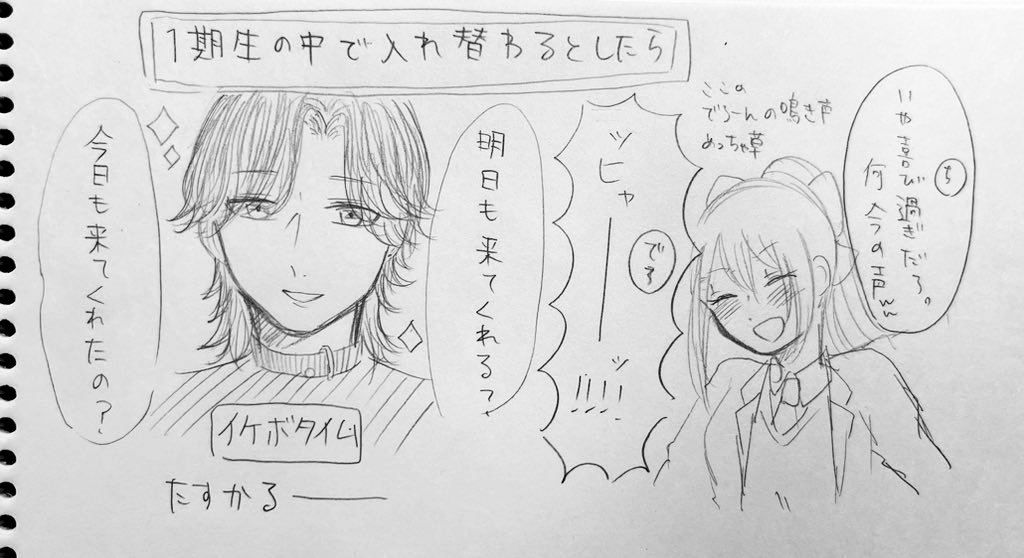 1期生の中で入れ替わるとしたら
明日も来てくれる?
今日も来てくれたの?
イケボタイム
たすかる――
ここの
でろーんの鳴き声
めっちゃ草
ち
いや喜び過ぎだろ。
何今の声ww
でろ
ッヒャ――ッ!!!!